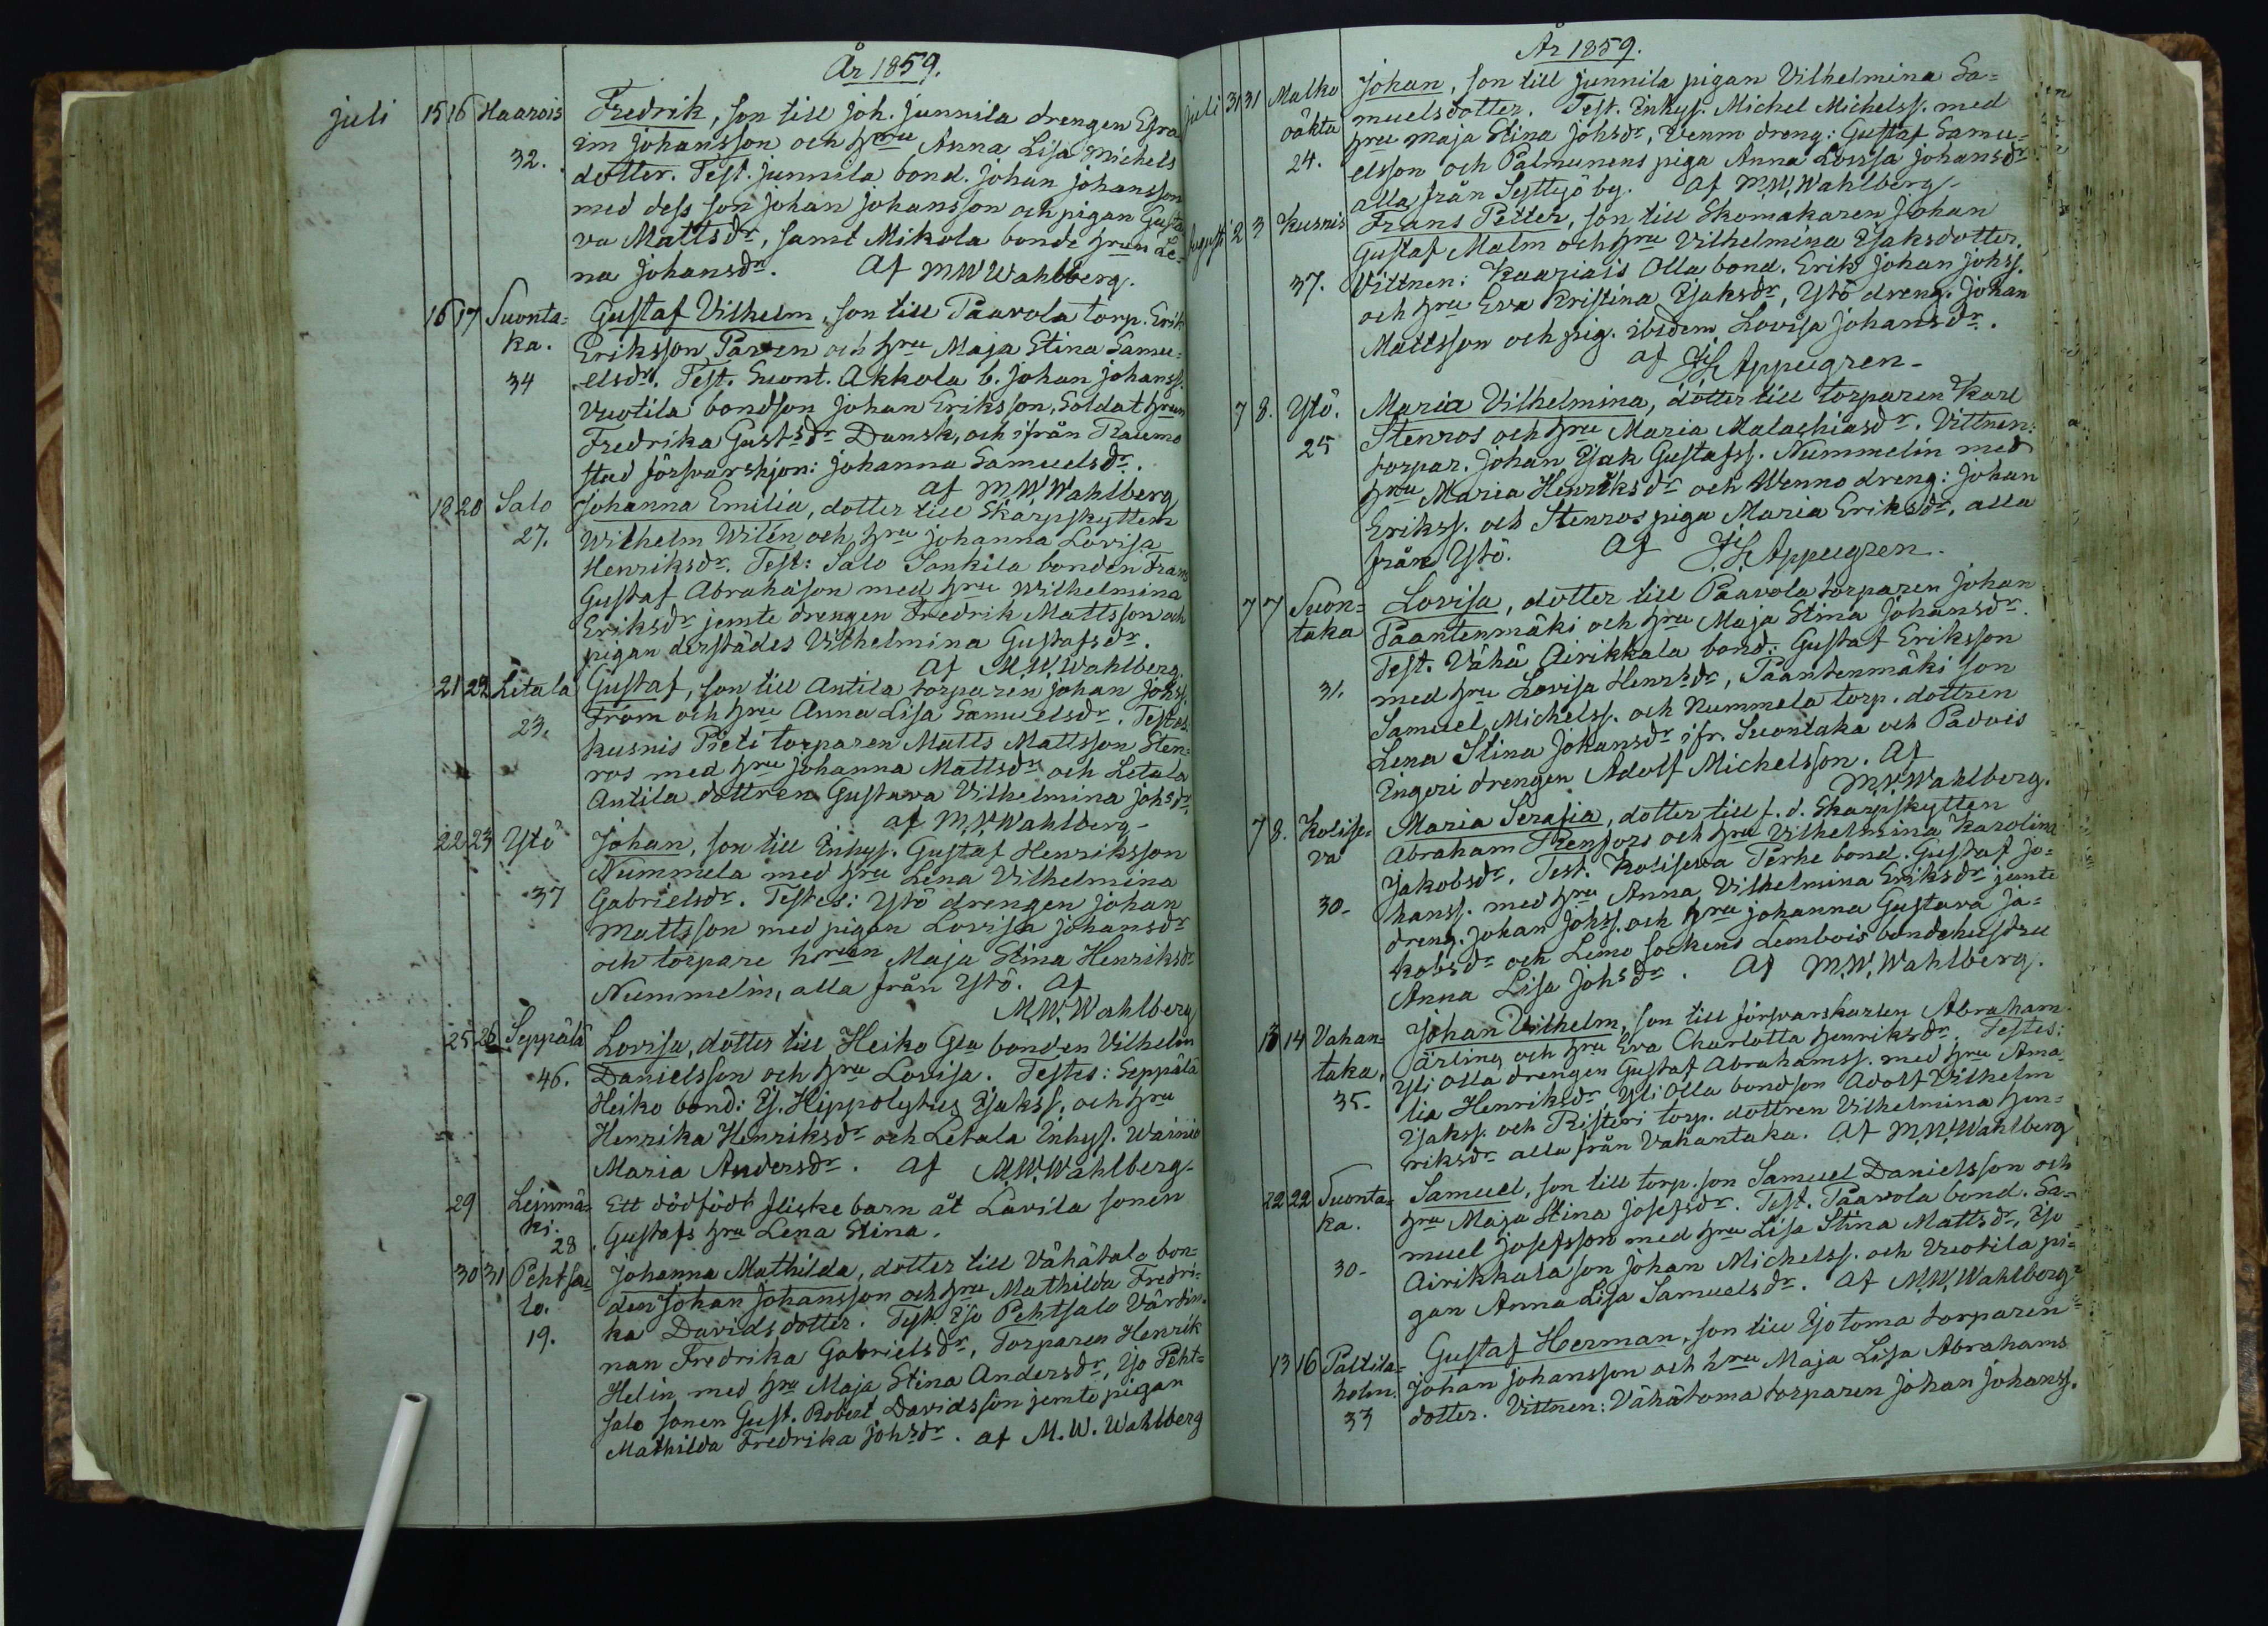 År 1859.
juli 15 16 Haarois Fredrik, son till Joh. Junnila drengen Efra
im Johansson och hru Anna Lisa Michels
32. dotter. Test. Junnila bond. Johan Johansson
med dess son Johan Johansson och pigan Gusta
va Mattsdr, samt Mikola bonde hrun Le-
na Johansdr. Af M W Wahlberg.
16 17 Suonta= Gustaf Vilhelm, son till Paavola torp. Erik
ka. Eriksson Paven och hru Maja Stina Samu-
34 elsdr. Test. Suont. Akkola b. Johan Johanss.
Vuotila bondson Johan Eriksson, Soldat hrun
Fredrika Gustsdr Dansk, och ifrån Raumo
stad försvarshjon: Johanna Samuelsdr.
af M.W. Wahlberg
18 20 Salo Johanna Emilia, dotter till Skarpskytten
27. Wilhelm Wilén och hru Johanna Lovisa
Henriksdr. Test: Salo Sonkila bonden Frans
Gustaf Abrahäson med hru Wilhelmina
Eriksdr jemte drengen Fredrik Mattsson och
pigan derstädes Vilhelmina Gustafsdr.
Af M.W. Wahlberg.
21 22 Letala Gustaf, son till Antila torparen Johan Johss.
23. Fröm och hru Anna Lisa Samuelsdr. Testes.
Kusnis Pieti torparen Matts Mattsson Sten-
ros med hru Johanna Mattsdr och Letala
Antila dottren Gustava Vilhelmina Johsdr.
af M.W. Wahlberg-
22 23 Ytö Johan, son till Inhys. Gustaf Henriksson
Nummela med hru Lena Vilhelmina
37 Gabrielsdr. Testes: Ytö drengen Johan
Mattsson med pigan Lovisa Johansdr
och torpare hrun Maja Stina Henriksdr
Nummelin, alla från Ytö. Af
M.W. Wahlberg
25 26 Seppälä Lovisa, dotter till Heiko Gla bonden Vilhelm
46. Danielsson och hru Lovisa. Testes: Seppälä
Heiko bond: Is. Hippolytus Isakss. och hru
Henrika Henriksdr och Letala Inhys. Wainio
Maria Andersdr. af M.W. Wahlberg-
29 Leinmä= Ett dödfödt flicke barn åt Lavila sonen
ki. 28 Gustafs hru Lena Stina.
30 31 Pehtsa= Johanna Mathilda, dotter till Vähätalo bon-
lo. den Johan Johansson och hru Mathilda Fredri-
19. ka Davidsdotter. Test. Iso Pehtsalo Värdin-
nan Fredrika Gabrielsdr, Torparen Henrik
Helin med hru Maja Stina Andersdr, Iso Peht=
salo sonen Gust. Robert Davidsson jemte pigan
Mathilda Fredrika Johsdr. af M. W. Wahlberg
År 1859.
juli 31 31 Malko Johan, son till Junnila pigan Vilhelmina Sa=
oäkta muelsdotter. Test. Inhys. Michel Michelss. med
24. hru Maja Stina Johsdr, Venm dreng: Gustaf Samu-
elsson och Palmunens piga Anna Lovisa Johansdr
alla från Syttsjö by. Af M.W. Wahlberg-
Augusti 2 3 Kusnis Frans Petter, son till Skomakaren Johan
Gustaf Malm och hru Vilhelmina Isaksdotter.
37. Vittnen: Kaariais Olla bond. Erik Johan Johss.
och hru Eva Kristina Isaksdr, Ytö dreng. Johan
Mattsson och pig. ibidem Lovisa Johansdr.
af J.L. Appelgren-
7 8. Ytö. Maria Vilhelmina, dotter till torparen Karl
25 Stenros och hru Maria Malachiasdr. Vittnen:
torpar. Johan Isak Gustafss. Nummelin med
hru Maria Henriksdr och Wenno dreng: Johan
Erikss. och Stenros piga Maria Eriksdr, alla
från Ytö. Af J.L. Appelgren.
7 7 Suon= Lovisa, dotter till Paavola torparen Johan
taka Paantenmäki och hru Maja Stina Johansdr.
Test. Vähä Airikkala bond: Gustaf Eriksson
31. med hru Lovisa Henrsdr, Paantenmäki son
Samuel Michelss. och Nummela torp. dottren
Lena Stina Johansdr ifr. Suontaka och Padvois
Ingeri drengen Adolf Michelsson. Af
M.W. Wahlberg.
7 8. Kolise= Maria Serafia, dotter till f.d. Skarpskytten
va Abraham Renfors och hru Vilhelmina Karolina
Jakobsdr. Test. Koliseva Perhe bond. Gustaf Jo=
30- hanss. med hru Anna Vilhelmina Eriksdr jemte
dreng. Johan Johss. och hru Johanna Gustava Ja=
kobsdr och Lemo Sockens Lembois bondehustru
Anna Lisa Johsdr. Af M.W. Wahlberg.
13 14 Vahan= Johan Vilhelm, son till försvarskarlen Abraham
taka. Ärling och hru Eva Charlotta Henriksdr. Testes:
Yli Olla drengen Gustaf Abrahamss. med hru Ama-
35- lia Henriksdr Yli Olla bondson Adolf Vilhelm
Isakss. och Risteri torp. dottren Vilhelmina Hen=
riksdr alla från Vahantaka. Af M.W. Wahlberg
22 22 Suonta= Samuel, son till torp. son Samuel Danielsson och
ka. hru Maja Stina Josefsdr. Test. Paavola bond. Sa-
muel Josefsson med hru Lisa Stina Mattsdr, Iso
30- Airikkala son Johan Michelss. och Vuotila pi=
gan Anna Lisa Samuelsdr. Af M.W. Wahlberg
13 16 Paltila= Gustaf Herman, son till Isotoma torparen
holm. Johan Johansson och hru Maja Lisa Abrahams
33 dotter. Vittnen: Vähätoma torparen Johan Johanss.